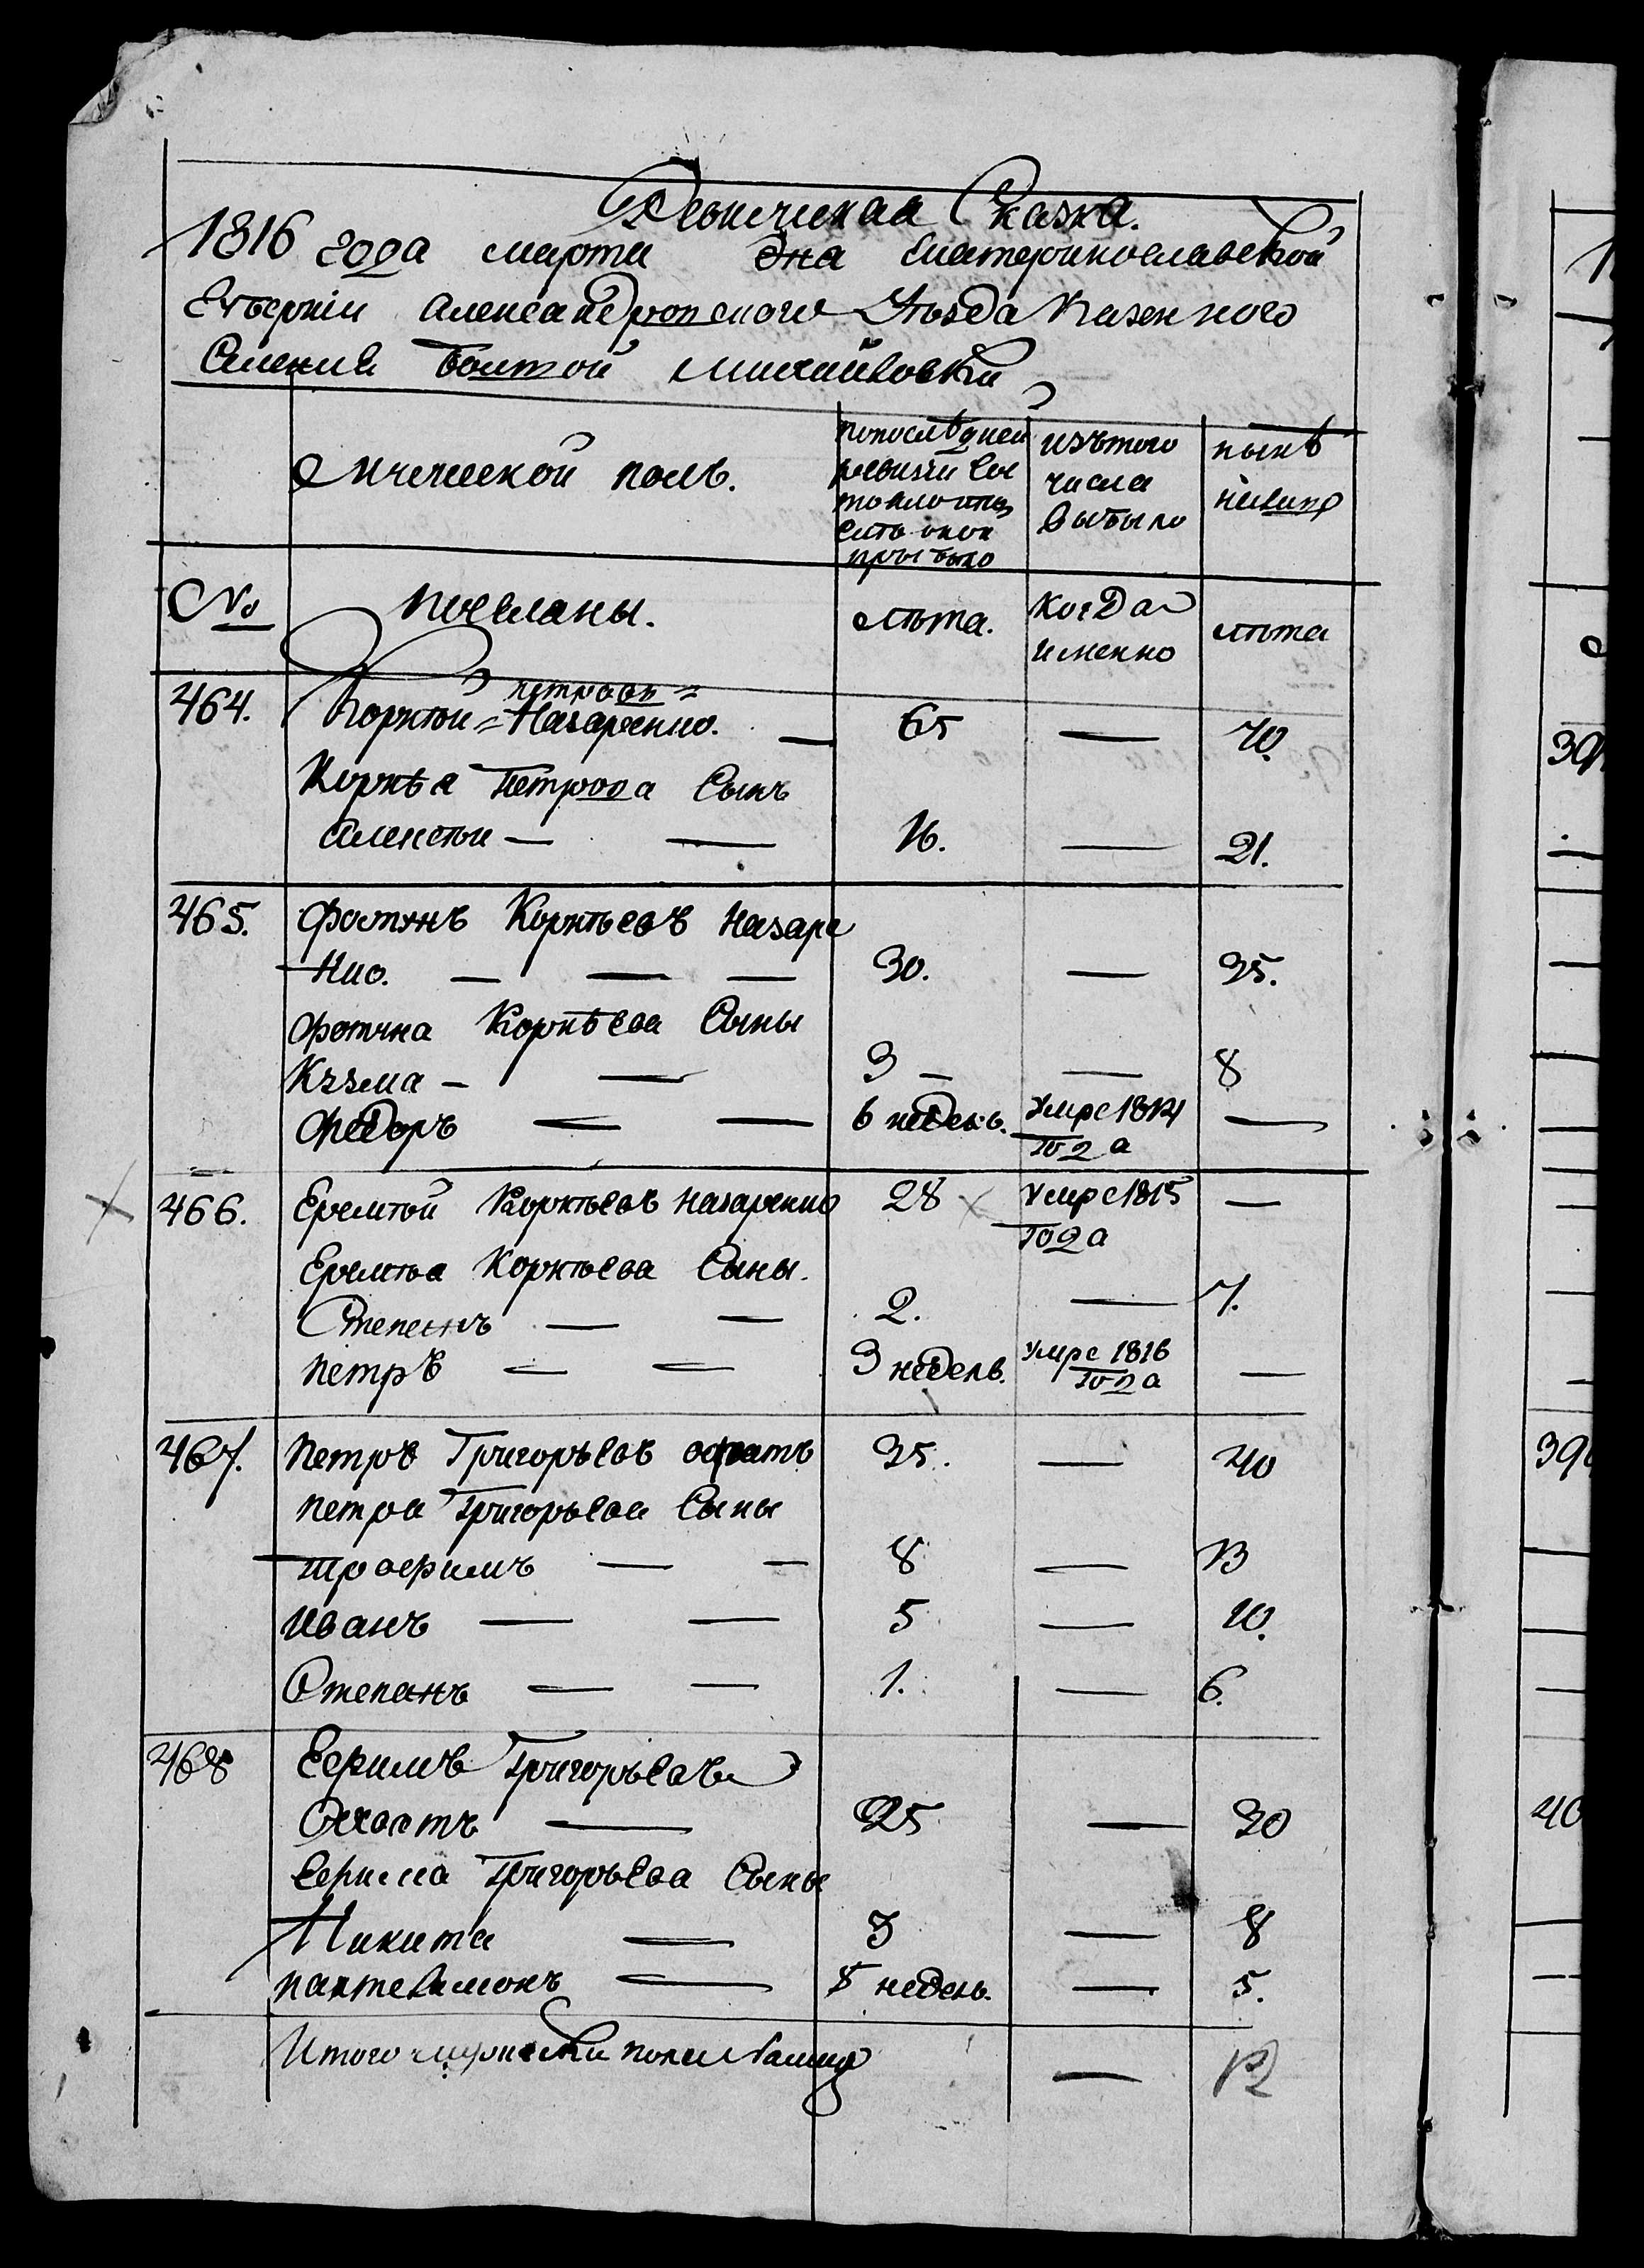 Ревижская Сказка.
1816 года марта дна Екатеринославской
Губернии Александровского Уѣзда Казенного
Селения Болшой Михайловки
Мужеской полъ.
по последней ревизии состояло и послѣ оной прибыло
изътого числа выбыло
нынѣ налицо
№
Поселяны.
лѣта.
когда именно
лѣта
464. Корнѣй Петровъ Назаренко. — 65 — 70.
Корнѣя Петрова Сынъ
Алексѣй — — 16. — 21.
465. Фотинъ Корнѣевъ Назаре
нко. — — — 30. — 35.
Фотина Корнѣева Сыны
Кузма — — 3 — — 8
Федоръ — — 6 недель. Умре 1814 года —
466. Еремѣй Корнѣевъ Назаренко 28 Умре 1815 года —
Еремѣя Корнѣева Сыны.
Степанъ — — 2. — 7.
Петръ — — 3 недель. Умре 1816 года —
467. Петръ Григорьевъ 35. — 40
Петра Григорьева Сыны
Трофимъ — — 8 — 13
Иванъ — — 5 — 10.
Степанъ — — 1. — 6.
468 Ефимъ Григорьевъ
— 25 — 30
Ефима Григорьева Сыны
Никита — 3 — 8
Пантелимонъ — 5 недель. — 5.
Итого мужеска пола налицо — 12